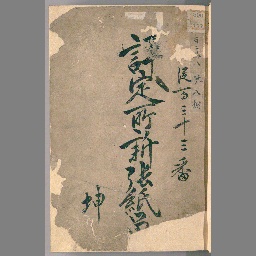 従百三十三番
評定所新張紙留
坤